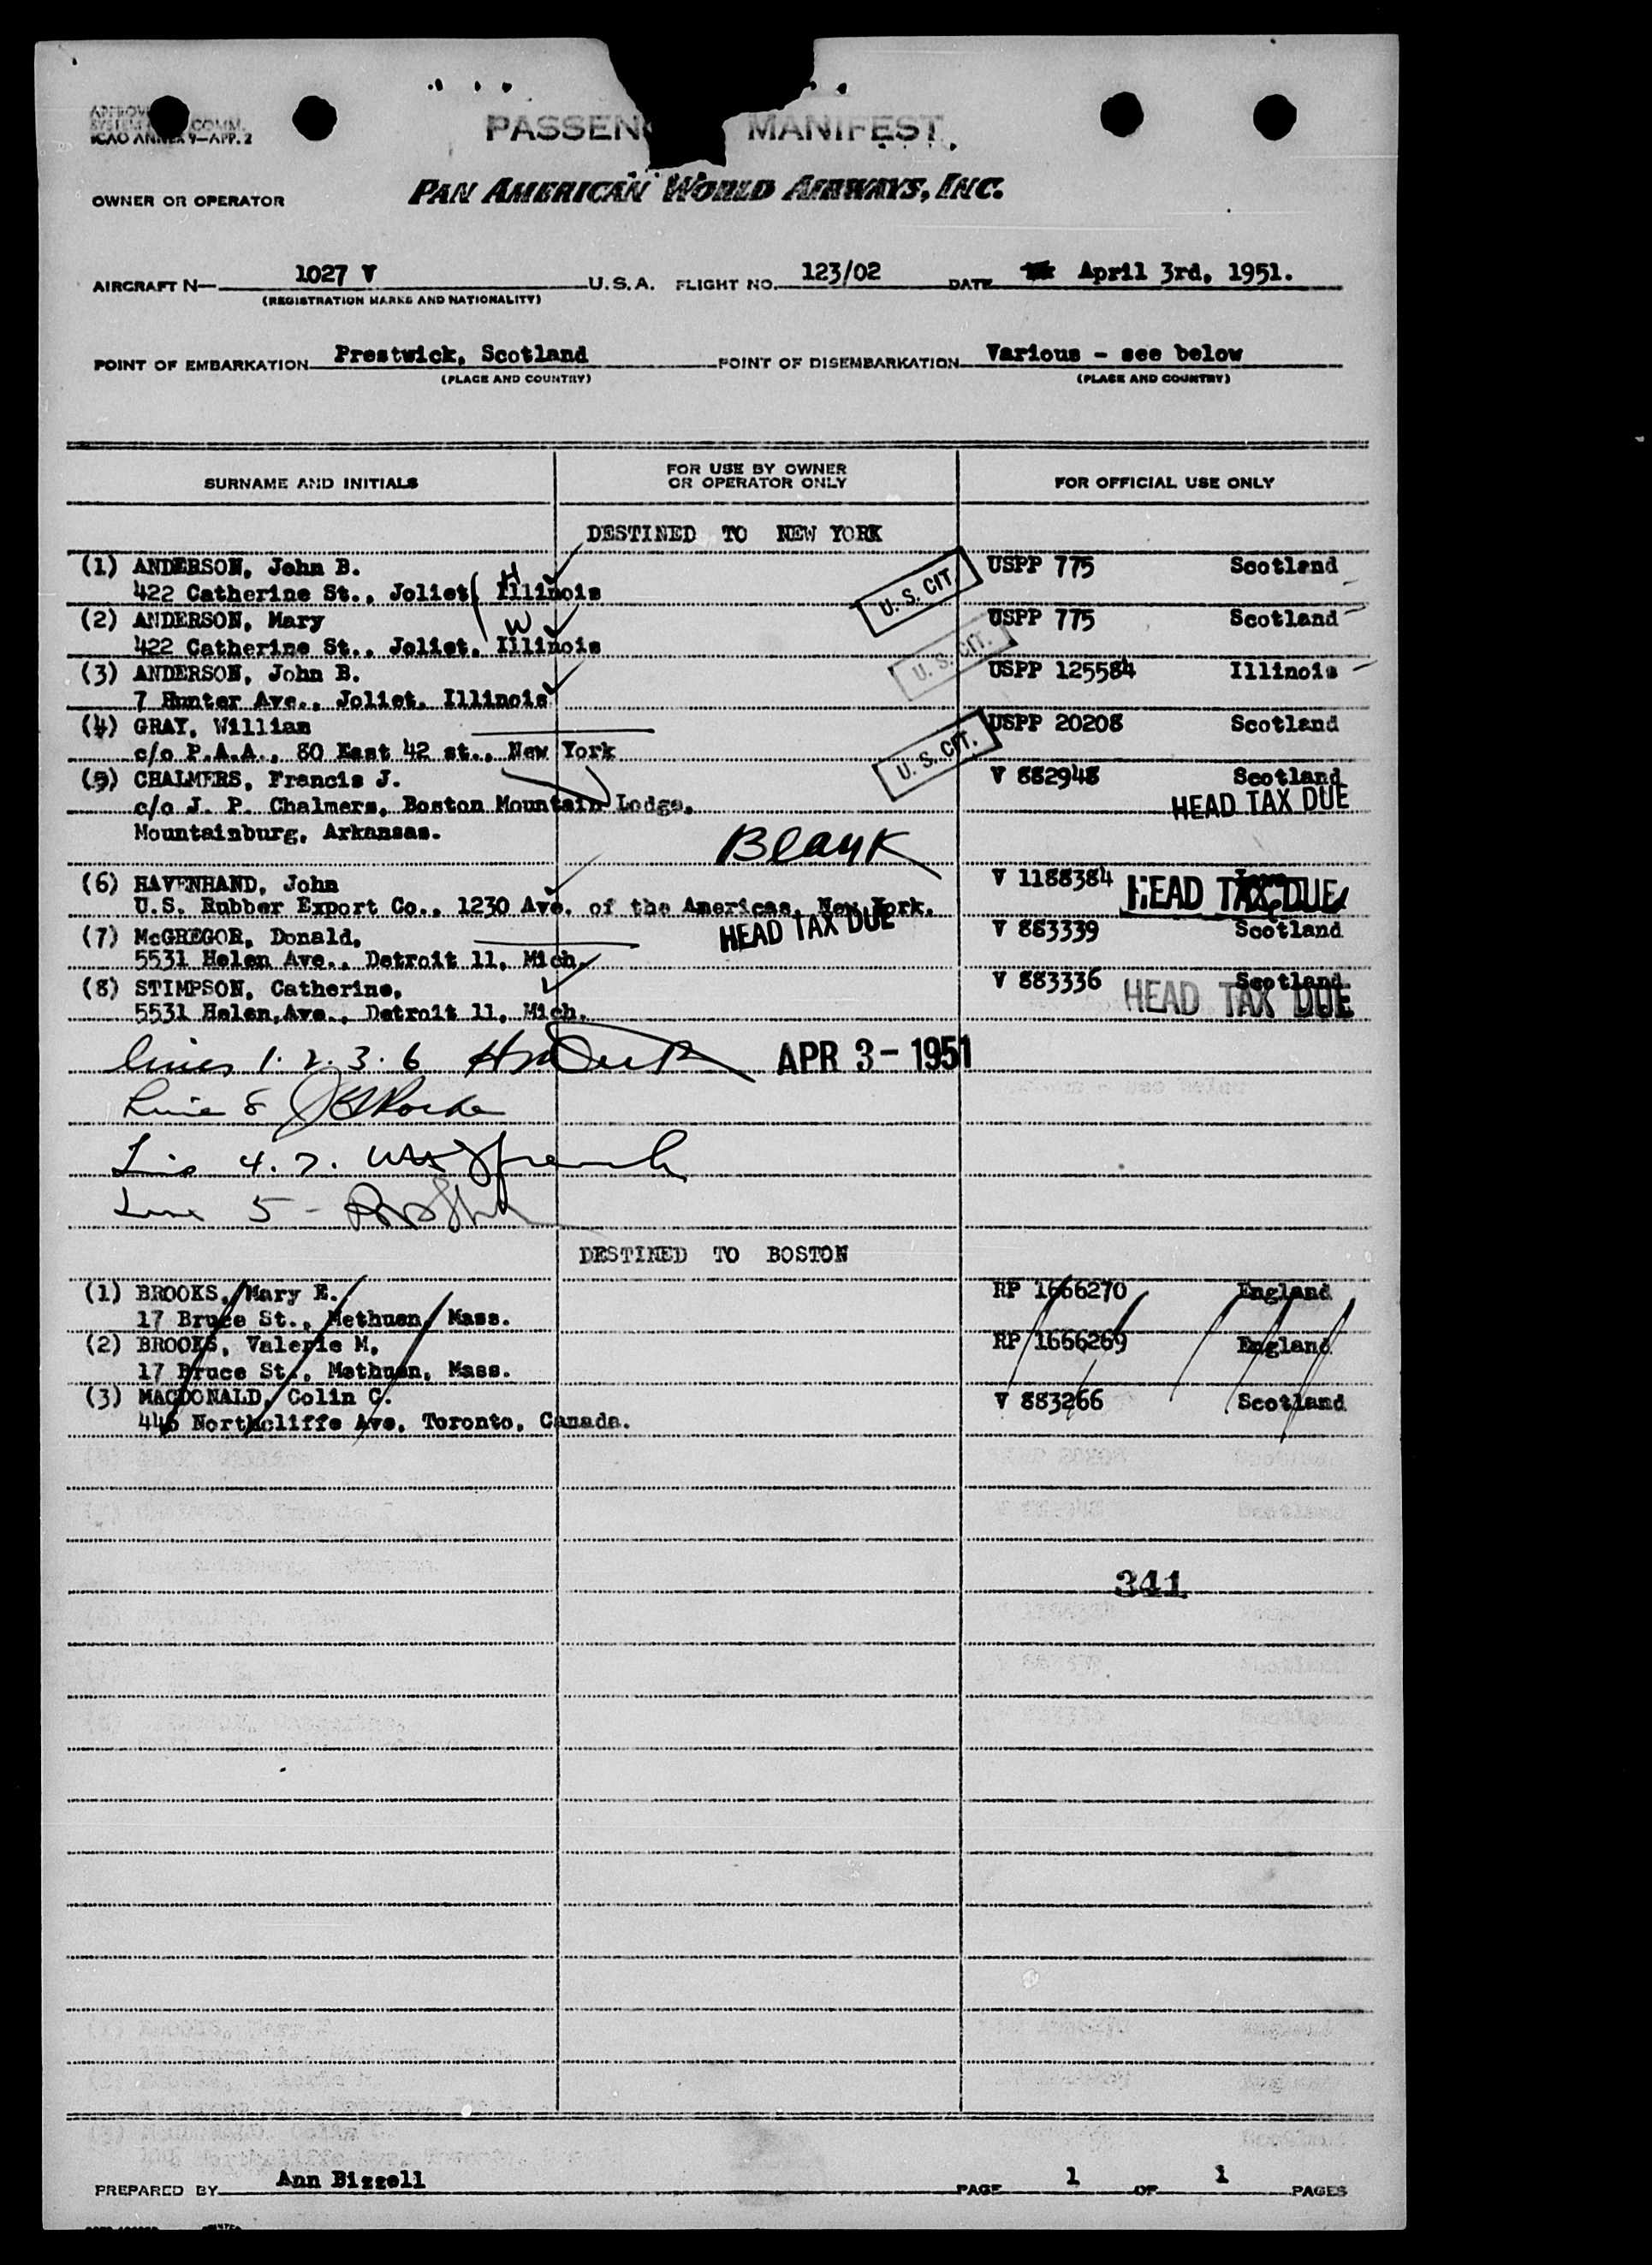 ICAO ANNEX 9—APP. 2
PASSEN MANIFEST
OWNER OR OPERATOR PAN AMERICAN WORLD AIRWAYS, INC.
AIRCRAFT N— 1027 V U.S.A. FLIGHT NO. 123/02 DATE April 3rd, 1951.
(REGISTRATION MARKS AND NATIONALITY)
POINT OF EMBARKATION Prestwick, Scotland POINT OF DISEMBARKATION Various - see below
(PLACE AND COUNTRY) (PLACE AND COUNTRY)
SURNAME AND INITIALS FOR USE BY OWNER OR OPERATOR ONLY FOR OFFICIAL USE ONLY
DESTINED TO NEW YORK
(1) ANDERSON, John B. USPP 775 Scotland
H
422 Catherine St., Joliet, Illinois U. S. CIT.
(2) ANDERSON, Mary USPP 775 Scotland
W
422 Catherine St., Joliet, Illinois U. S. CIT.
(3) ANDERSON, John B. USPP 125584 Illinois
7 Hunter Ave., Joliet, Illinois
(4) GRAY, William USPP 20208 Scotland
c/o P.A.A., 80 East 42 st., New York U. S. CIT.
(5) CHALMERS, Francis J. V 882948 Scotland
c/o J. P. Chalmers, Boston Mountain Lodge, HEAD TAX DUE
Mountainburg, Arkansas. Blank
(6) HAVENHAND, John V 1188384 HEAD TAX DUE
U.S. Rubber Export Co., 1230 Ave. of the Americas, New York.
(7) McGREGOR, Donald, HEAD TAX DUE V 883339 Scotland
5531 Helen Ave., Detroit 11, Mich.
(8) STIMPSON, Catherine, V 883336 Scotland
5531 Helen Ave., Detroit 11, Mich. HEAD TAX DUE
lines 1. 2. 3. 6 APR 3 - 1951
Line 8
4. 7.
Line 5 -
DESTINED TO BOSTON
(1) BROOKS, Mary E. RP 1666270 England
17 Bruce St., Methuen, Mass.
(2) BROOKS, Valerie M. RP 1666269 England
17 Bruce St., Methuen, Mass.
(3) MACDONALD, Colin C. V 883266 Scotland
446 Northcliffe Ave, Toronto, Canada.
341
PREPARED BY Ann Bizzell PAGE 1 OF 1 PAGES